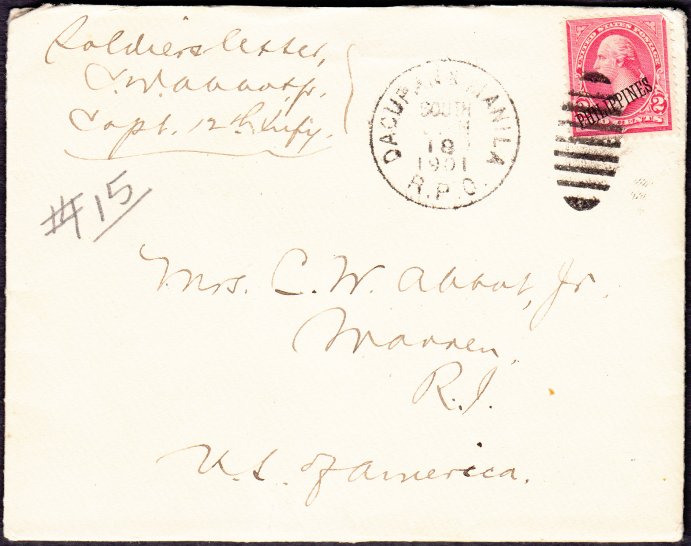 Soldiers letter,
C. W. Abbot, Jr.
Capt. 12th Infy.
#15
DAGUPAN & MANILA
SOUTH
18
1901
R.P.O.
UNITED STATES POSTAGE
PHILIPPINES
2 2
TWO CENTS
Mrs. C. W. Abbot, Jr.
Warren,
R.I.
U.S. of America.